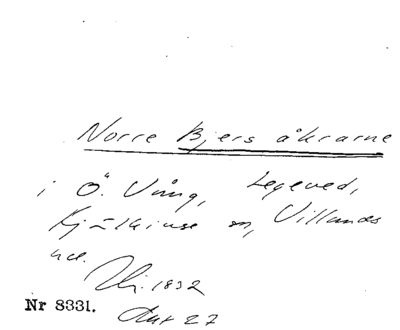 Norre Bjers åkrarne
i Ö. Vång, Legeved,
Kjälkinge sn, Villands
hd.
1832
Akt 27
Nr 8331.